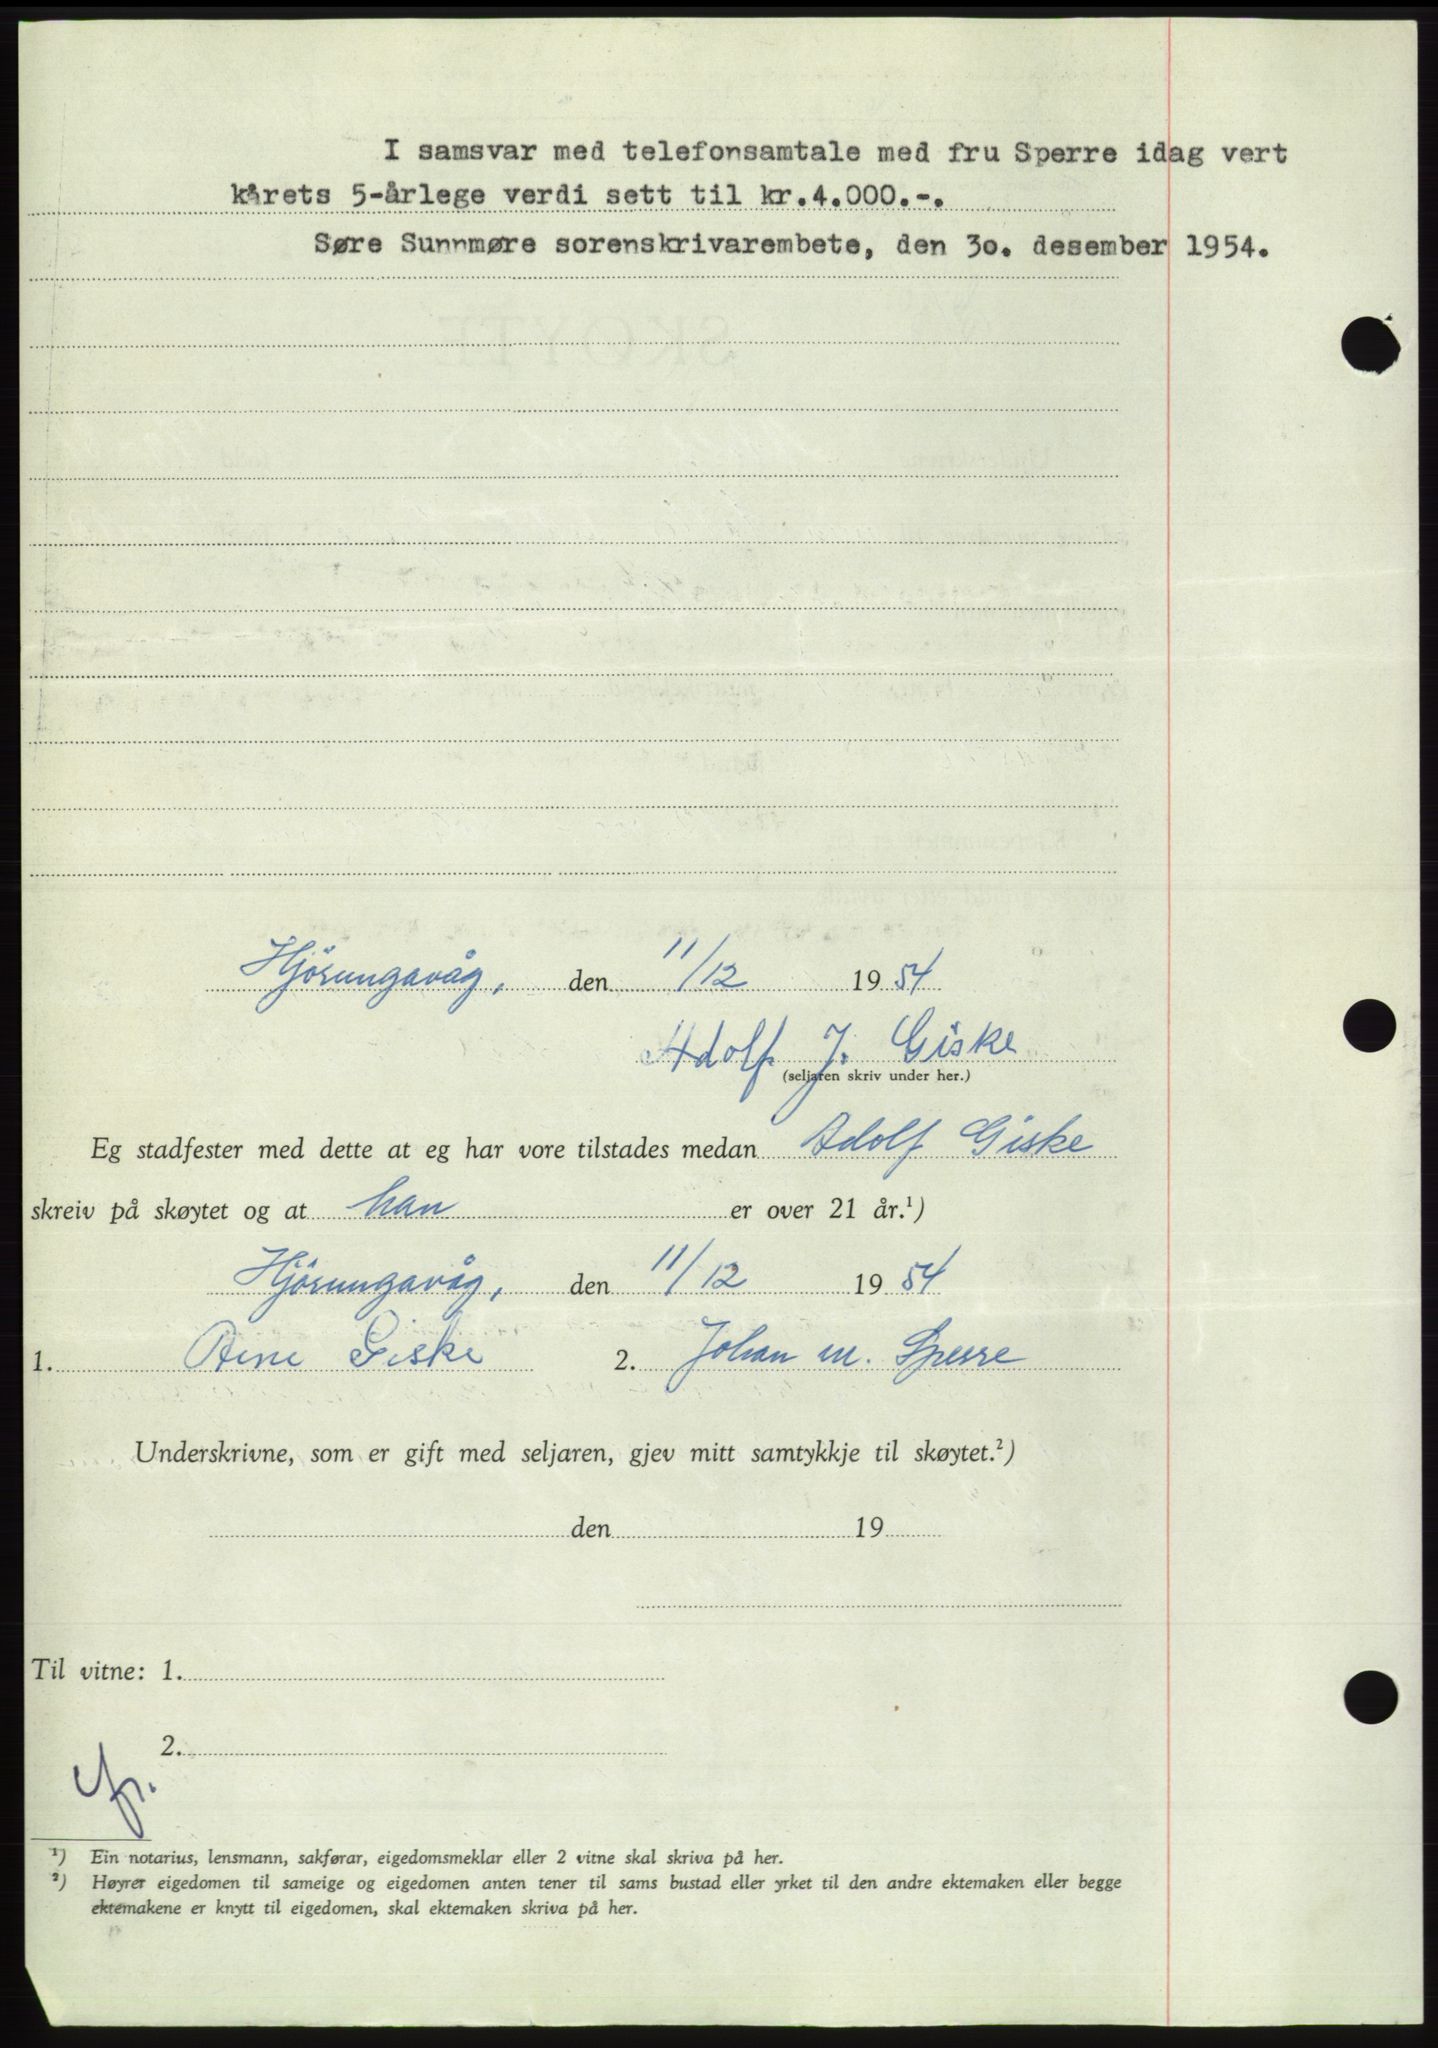 I samsvar med telefonsamtale med fru Sperre idag vert
kårets 5-årlege verdi sett til kr.4.000.-.
Søre Sunnmøre sorenskrivarembete, den 30. desember 1954.
Hjörungavåg, den 11/12 1954
Adolf J. Giske
(seljaren skriv under her.)
Eg stadfester med dette at eg har vore tilstades medan Adolf Giske
skreiv på skøytet og at han er over 21 år.¹)
Hjörungavåg, den 11/12 1954
1. Giske 2. Johan M. Sperre
Underskrivne, som er gift med seljaren, gjev mitt samtykkje til skøytet.²)
den 19
Til vitne: 1.
2.
¹) Ein notarius, lensmann, sakførar, eigedomsmeklar eller 2 vitne skal skriva på her.
²) Høyrer eigedomen til sameige og eigedomen anten tener til sams bustad eller yrket til den andre ektemaken eller begge
ektemakene er knytt til eigedomen, skal ektemaken skriva på her.